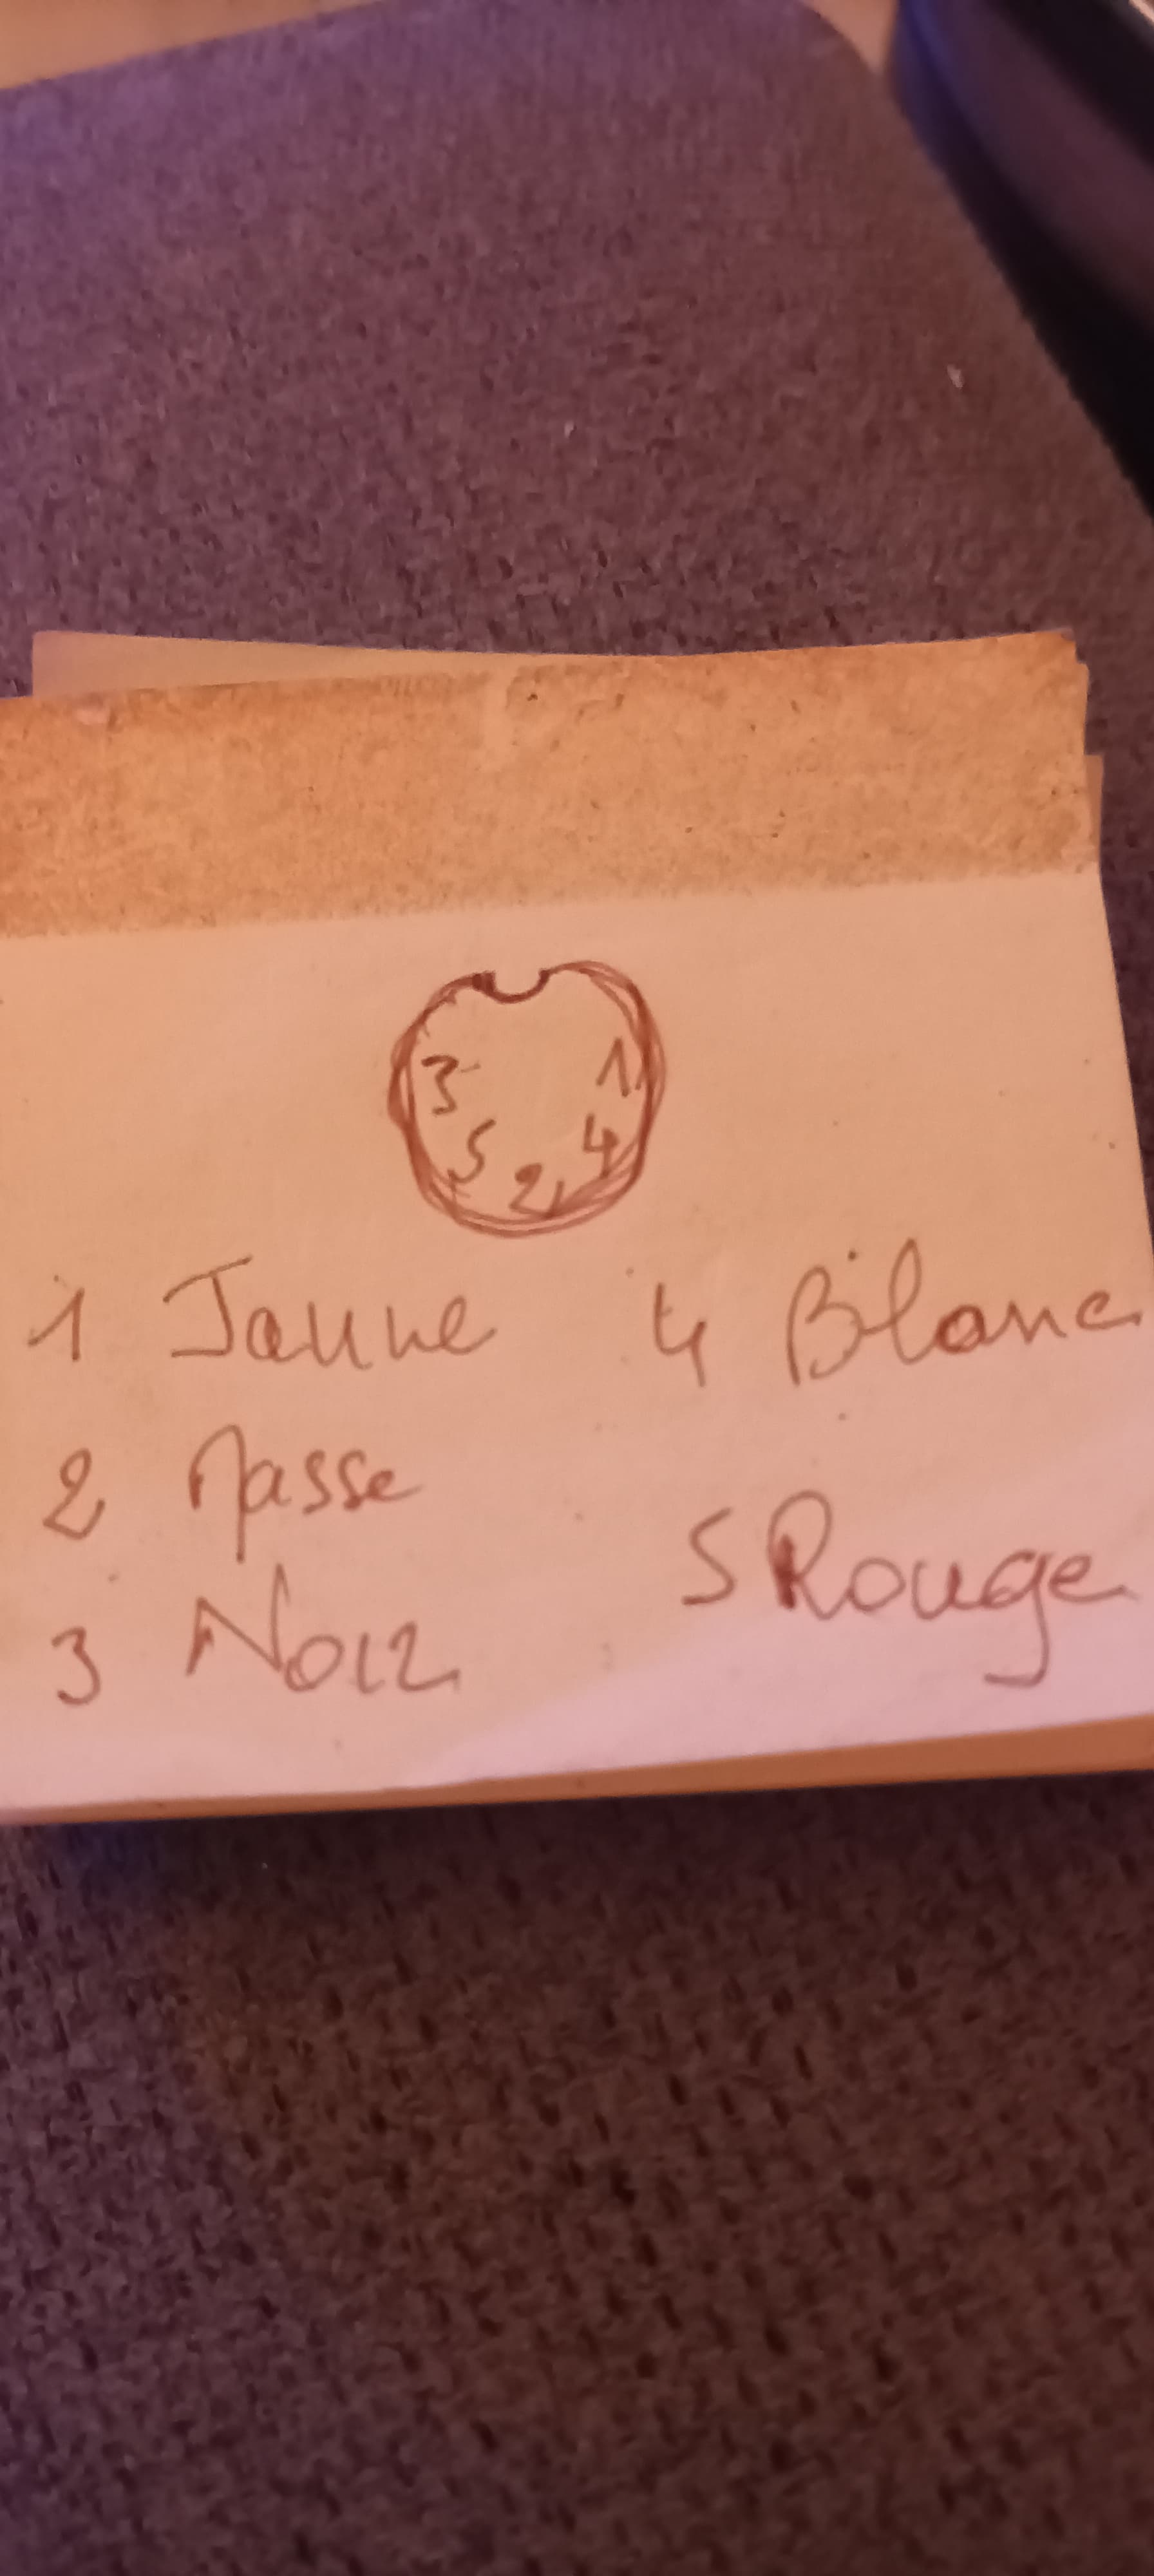 3 1
5 4
2
1 Jaune 4 Blanc
2 Masse
5 Rouge
3 Noir